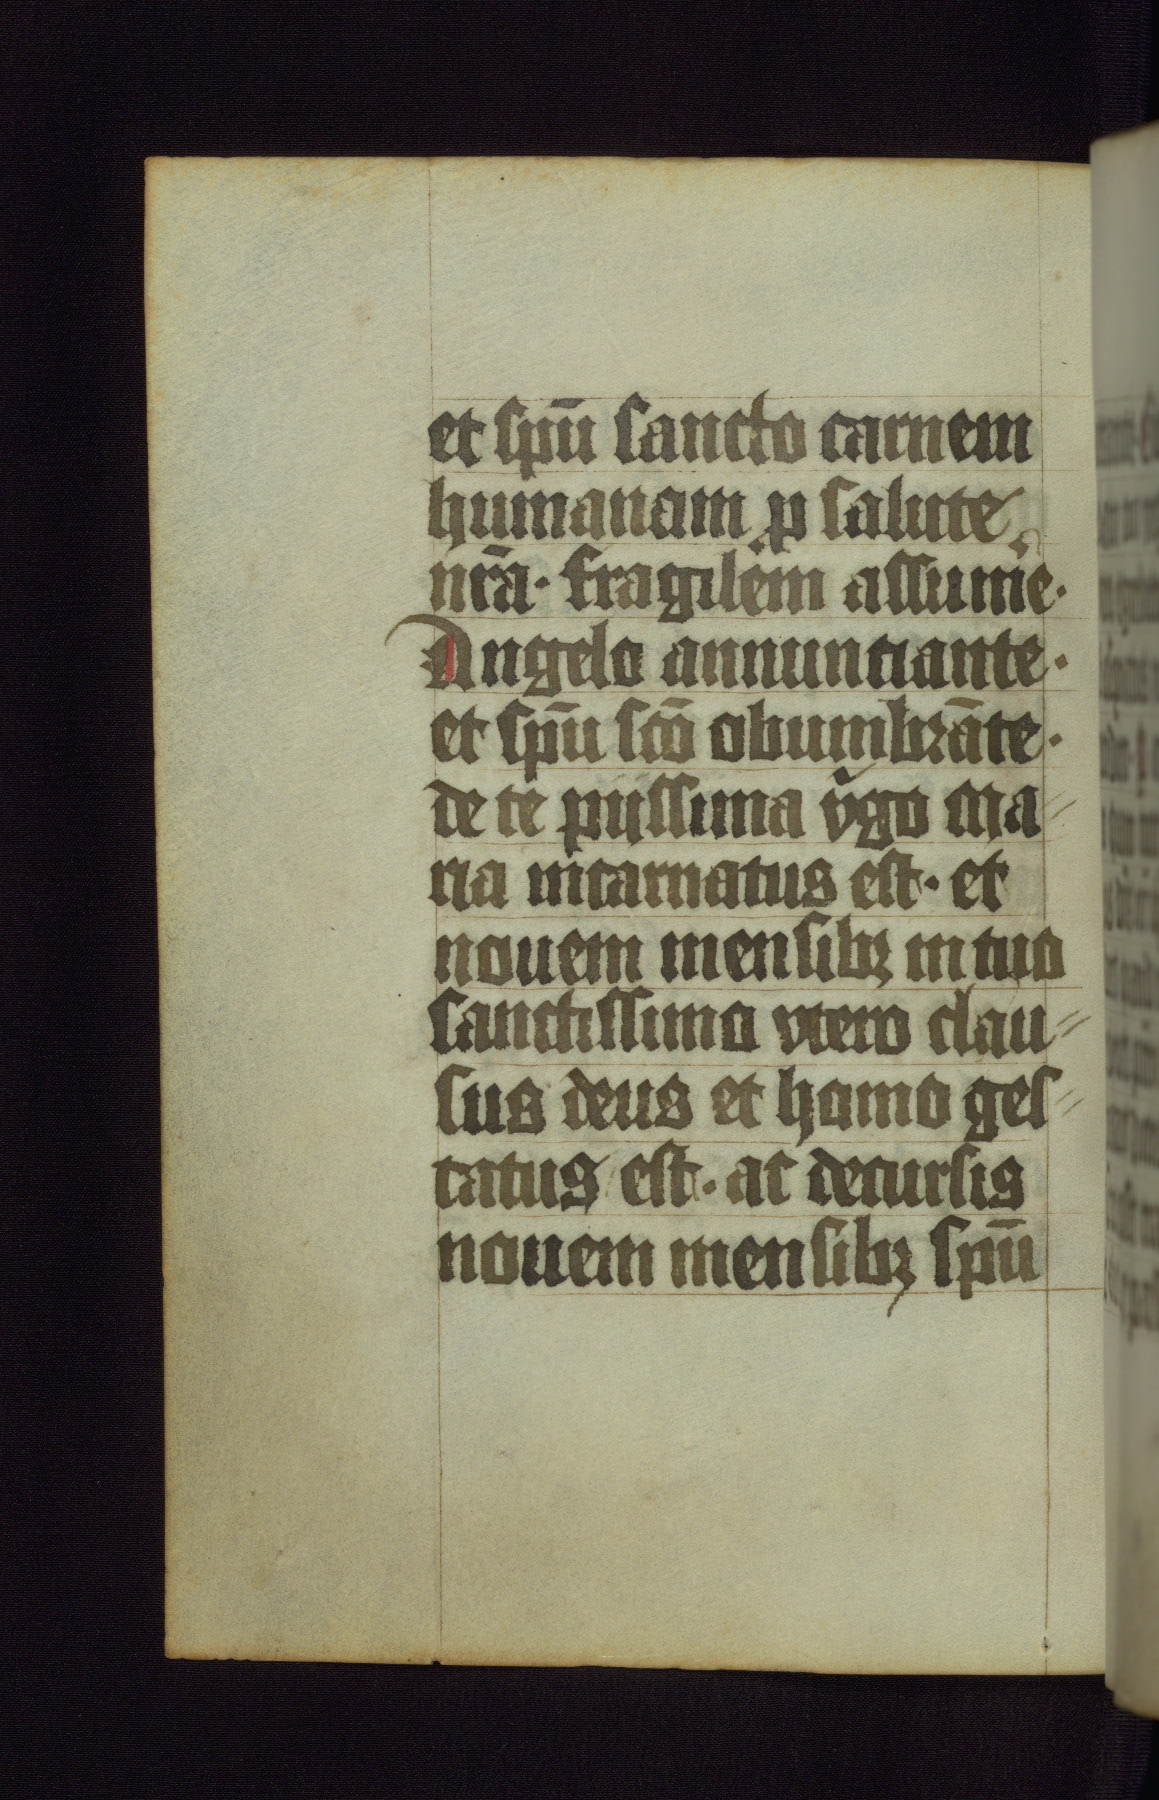 et spū sancto carnem
humanam ꝓ salute
nrā· fragilem assume·
Angelo annunciante·
et spū scō obumbrāte·
de te piissima v̄go Ma
ria incarnatus est· et
nouem mensibꝫ in tuo
sanctissimo vtero clau
sus deus et homo ges
tatus est· ac decursis
nouem mensibꝫ spū